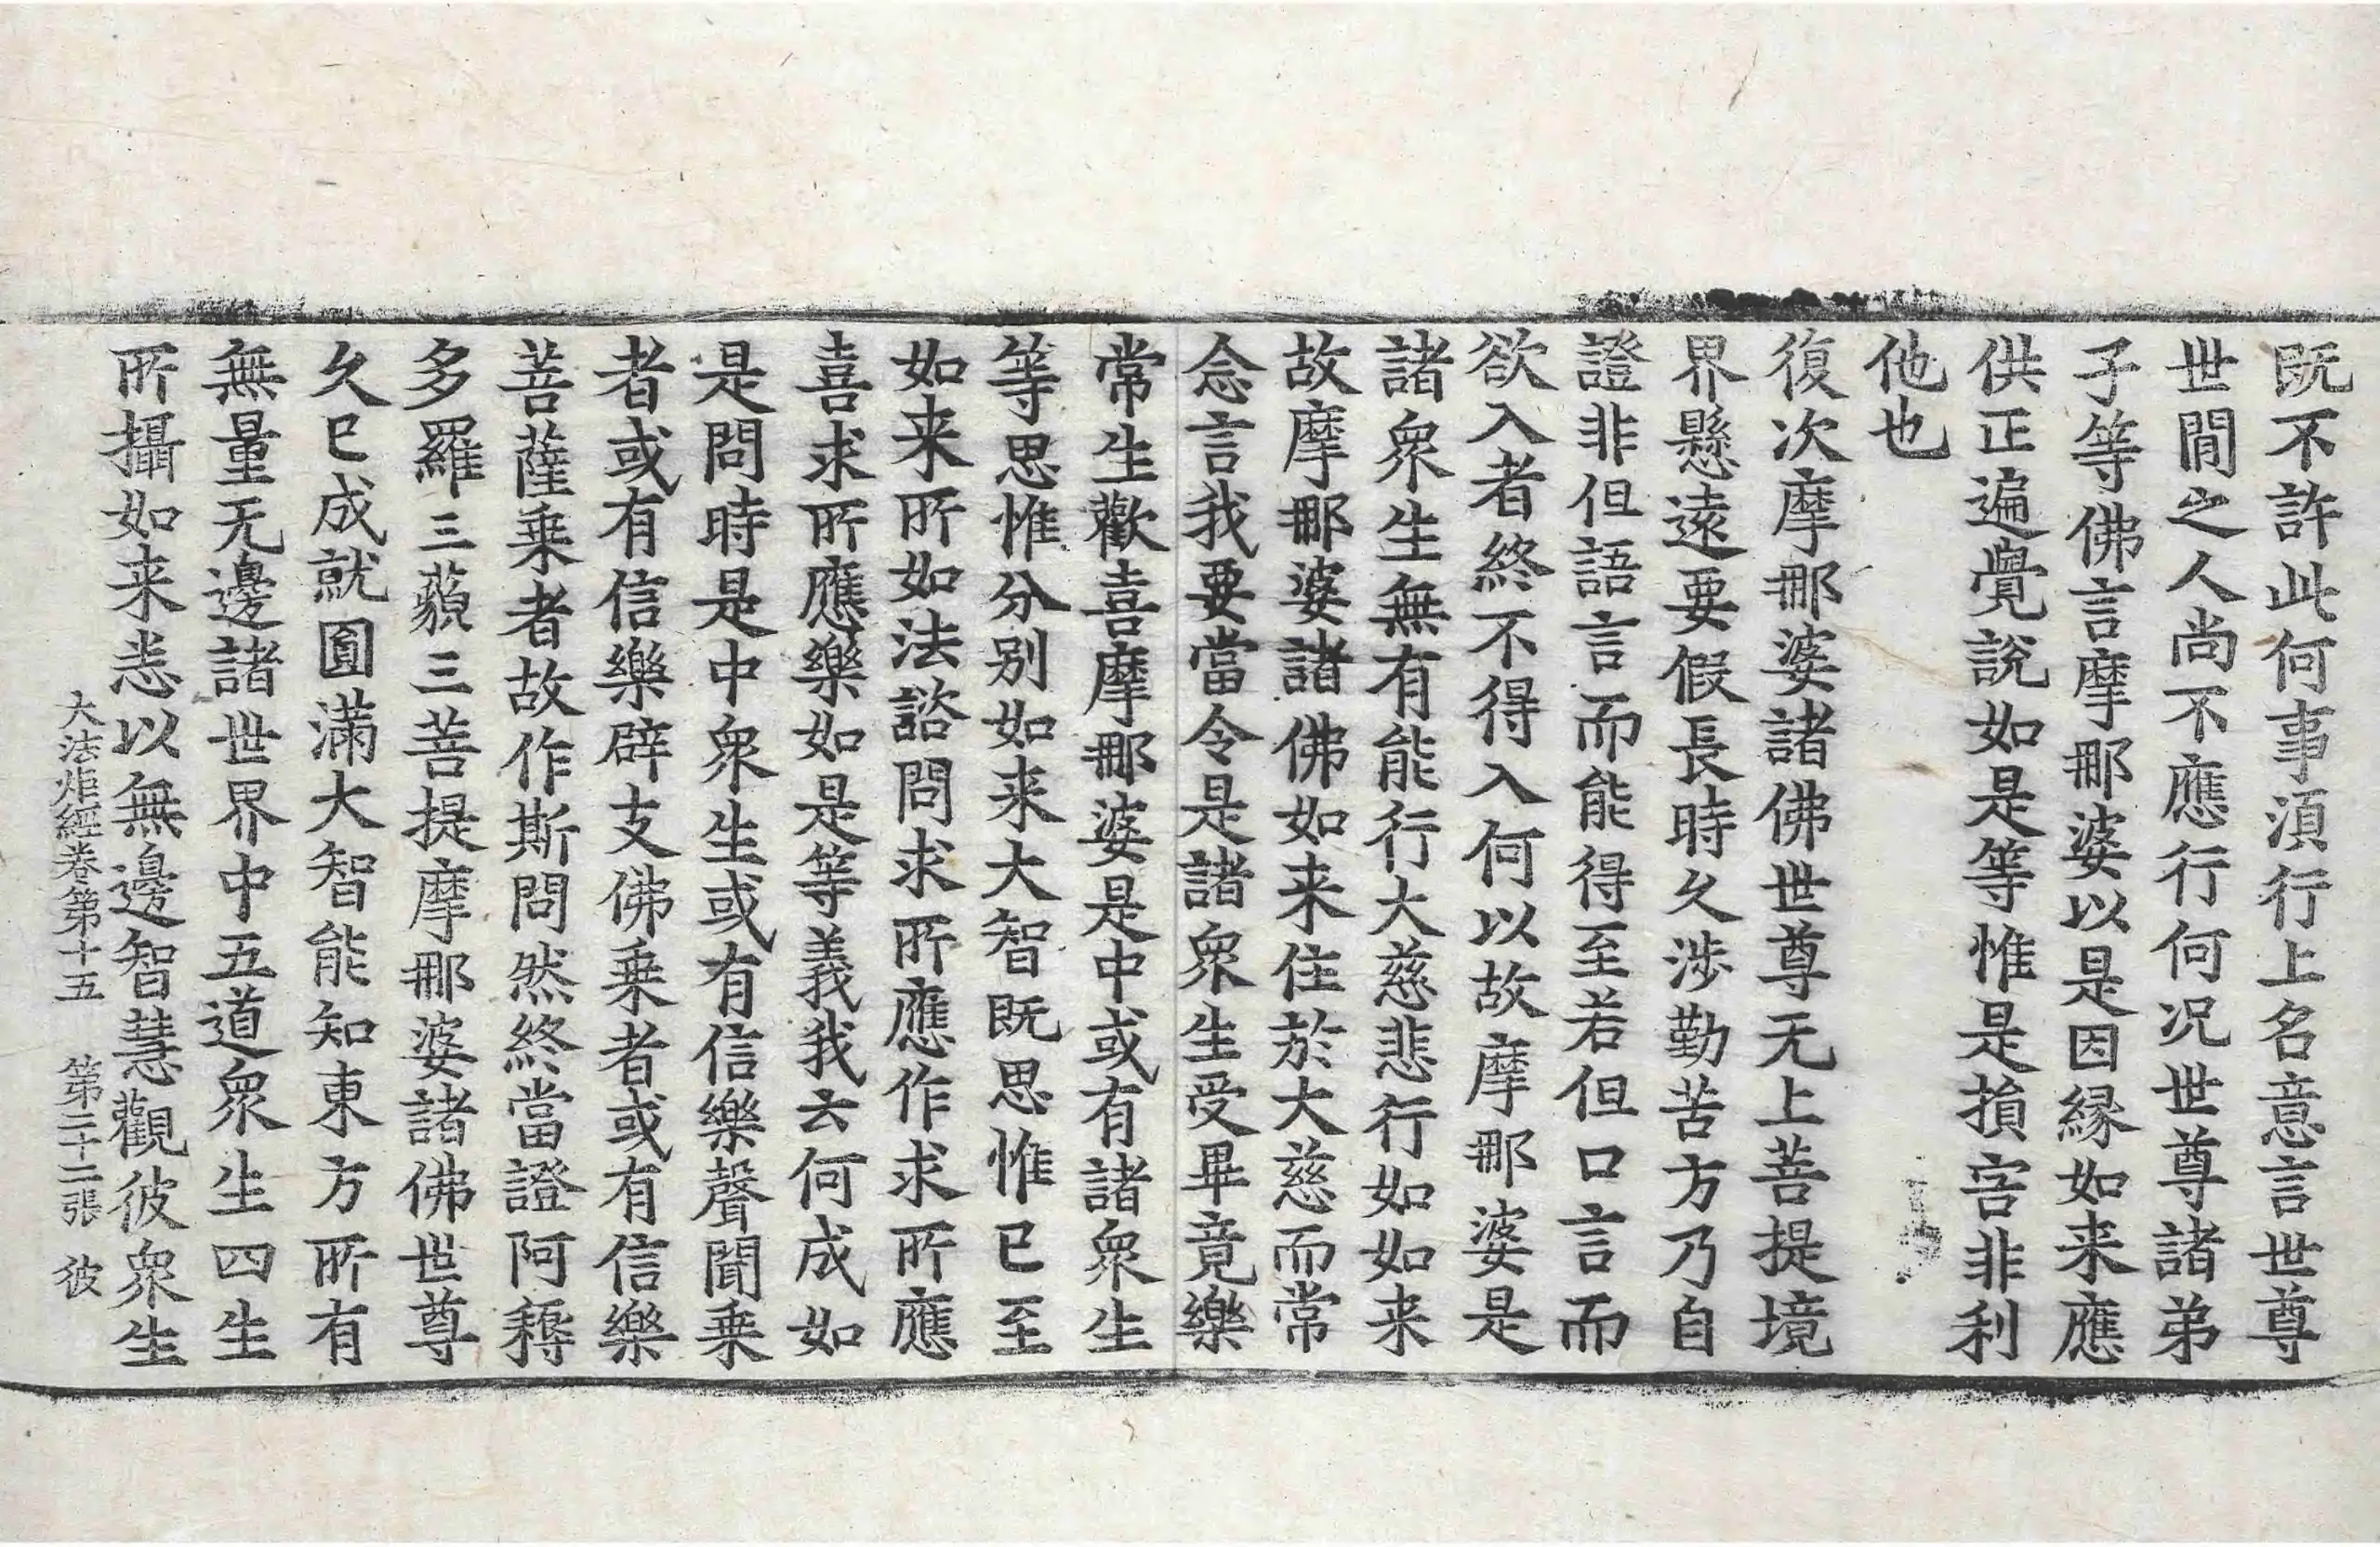 既不許此何事湏行上名意言世尊
世間之人尚不應行何况世尊諸弟
子等佛言摩那婆以是因緣如来應
供正遍覺說如是等惟是損害非利
他也
復次摩那婆諸佛世尊无上菩提境
界懸遠要假長時久涉勤苦方乃自
證非但語言而能得至若但口言而
欲入者終不得入何以故摩那婆是
諸衆生無有能行大慈悲行如如来
故摩那婆諸佛如来住於大慈而常
念言我要當令是諸衆生受畢竟樂
常生歡喜摩那婆是中或有諸衆生
等思惟分別如来大智既思惟已至
如来所如法諮問求所應作求所應
喜求所應樂如是等義我云何成如
是問時是中衆生或有信樂聲聞乗
者或有信樂辟支佛乗者或有信樂
菩薩乗者故作斯問然終當證阿耨
多羅三藐三菩提摩那婆諸佛世尊
久已成就圓滿大智能知東方所有
無量无邊諸世界中五道衆生四生
所攝如来悉以無邊智慧觀彼衆生
大法炬經卷第十五　第二十二張　彼